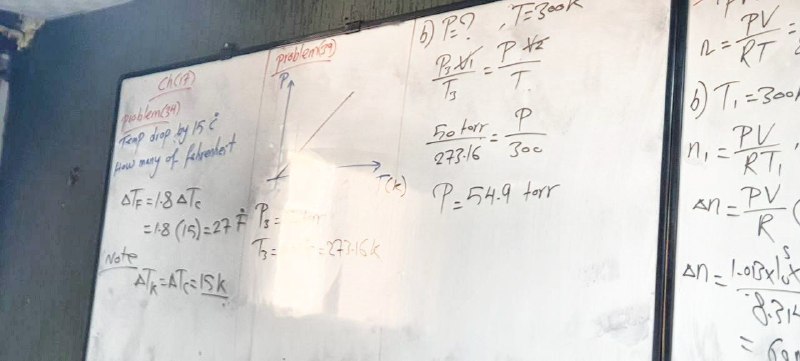 Ch(17)
problem(34)
Temp drop by 15 c°
How many of fahrenheit
ΔTF = 1.8 ΔTc
= 1.8 (15) = 27 F°
Note
ΔTK = ΔTc = 15K
problem(39)
P
T(K)
P3 =
T3 = = 273.16 K
b) P=? , T=300K
P3 V1 / T3 = P V2 / T
50 torr / 273.16 = P / 300
P = 54.9 torr
n = PV / RT =
b) T1 = 300K
n1 = PV / RT1
Δn = PV / R (
Δn = 1.013x10^5 x / 8.314
=